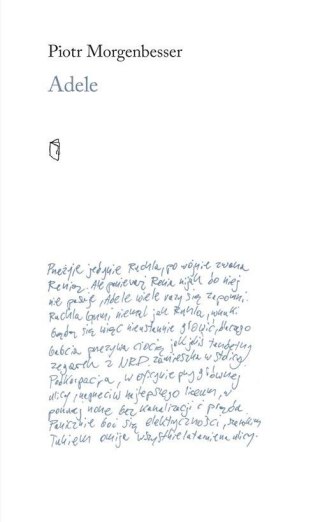 Piotr Morgenbesser
Adele
Przeżyje jedynie Rachla, po wojnie zwana
Renią. Ale ponieważ Renia nijak do niej
nie pasuje, Adele wiele razy się zapomni.
Rachla Greni, niemal jak Rachla, wnuki
będą się więc nieustannie głowić, dlaczego
babcia przezywa ciocię jak jakiś tandetny
zegarek z NRD zamieszka w stolicy
Podkarpacia, w oficynie przy głównej
ulicy, naprzeciw najlepszego liceum, w
ponurej norze bez kanalizacji i prądu
Panicznie boi się elektryczności, szerokim
łukiem omija wszystkie latarnie na ulicy.